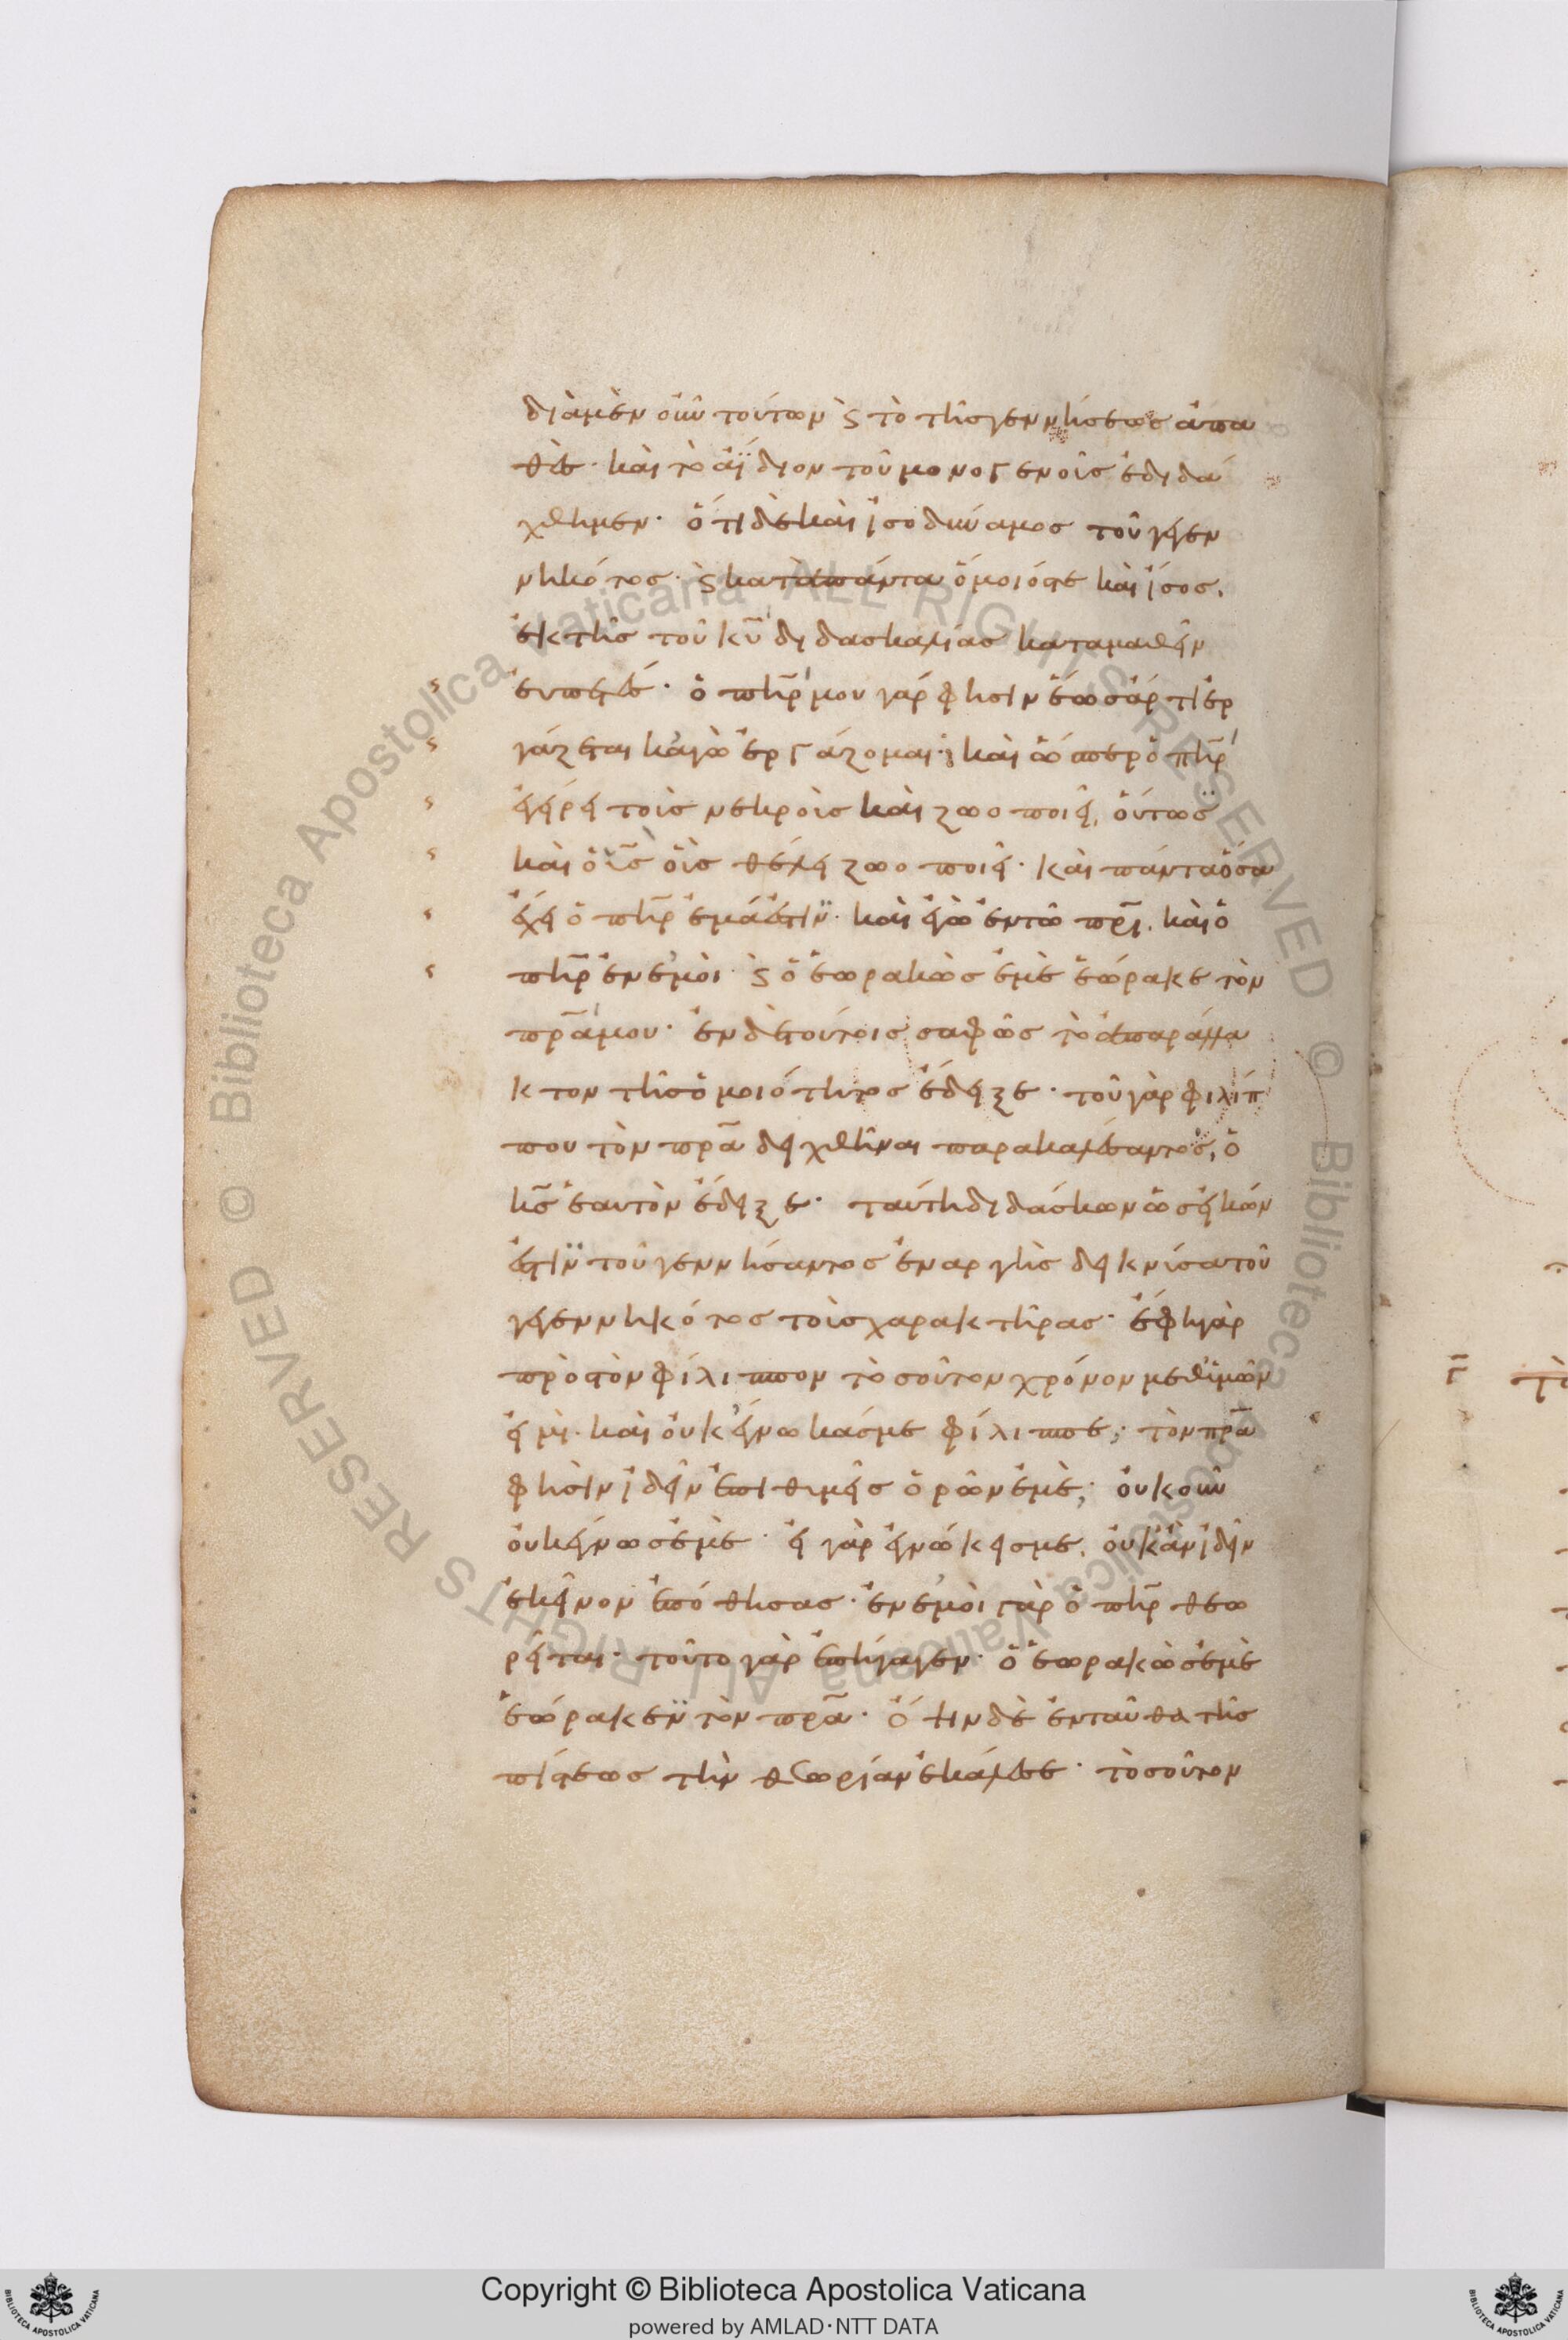 διὰ μὲν οὖν τούτων ϗ τὸ τῆς γεννήσεως ἀπα
θὲς· καὶ τὸ ἀΐδιον τοῦ μονογενοῦς ἐδιδά
χθημεν· ὅτι δὲ καὶ ἰσοδύναμος τοῦ γεγεν
νηκότος· ϗ κατὰ πάντα ὅμοιός τε καὶ ἴσος,
ἐκ τῆς τοῦ κ̅υ̅ διδασκαλίας καταμαθεῖν
εὐπετές· ὁ π̅η̅ρ̅ μου γάρ φησιν ἕως ἄρτι ἐρ
γάζεται κἀγὼ ἐργάζομαι· καὶ ὥσπερ ὁ π̅η̅ρ̅
ἐγείρει τοὺς νεκροὺς καὶ ζωοποιεῖ, οὕτως
καὶ ὁ υ̅ς̅ οὓς θέλει ζωοποιεῖ· καὶ πάντα ὅσα
ἔχει ὁ π̅η̅ρ̅ ἐμά ἐστιν· καὶ ἐγὼ ἐν τῶ π̅ρ̅ι̅, καὶ ὁ
π̅η̅ρ̅ ἐν ἐμοὶ· ϗ ὁ ἑωρακὼς ἐμὲ ἑώρακε τὸν
π̅ρ̅α̅ μου· ἐν δὲ τούτοις σαφῶς τὸ ἀπαράλλα
κτον τῆς ὁμοιότητος ἔδειξε· τοῦ γὰρ φιλίπ
που τὸν π̅ρ̅α̅ δειχθῆναι παρακαλέσαντος, ὁ
κ̅ς̅ ἑαυτὸν ἔδειξε· ταύτη διδάσκων ὡς εἰκών
ἐστιν τοῦ γεννήσαντος ἐναργεῖς δεικνῦσα τοῦ
γεγεννηκότος τοὺς χαρακτῆρας· ἔφη γὰρ
πρὸς τὸν φίλιππον τοσοῦτον χρόνον μεθ' ὑμῶν
εἰμι· καὶ οὐκ ἔγνωκάς με φίλιππε; τὸν π̅ρ̅α̅
φησὶν ἰδεῖν ἐπιθυμεῖς ὁρῶν ἐμὲ; οὐκοῦν
οὐκ ἔγνως ἐμὲ· εἰ γὰρ ἐγνώκεις με, οὐκ ἂν ἰδεῖν
ἐκεῖνον ἐπόθησας· ἐν ἐμοὶ γὰρ ὁ π̅η̅ρ̅ θεω
ρεῖται· τοῦτο γὰρ ἐπήγαγεν· ὁ ἑωρακὼς ἐμὲ
ἑώρακεν τὸν π̅ρ̅α̅· ὅτι δὲ ἐνταῦθα τῆς
πίστεως τὴν θεωρίαν ἐκάλεσε· τοσοῦτον